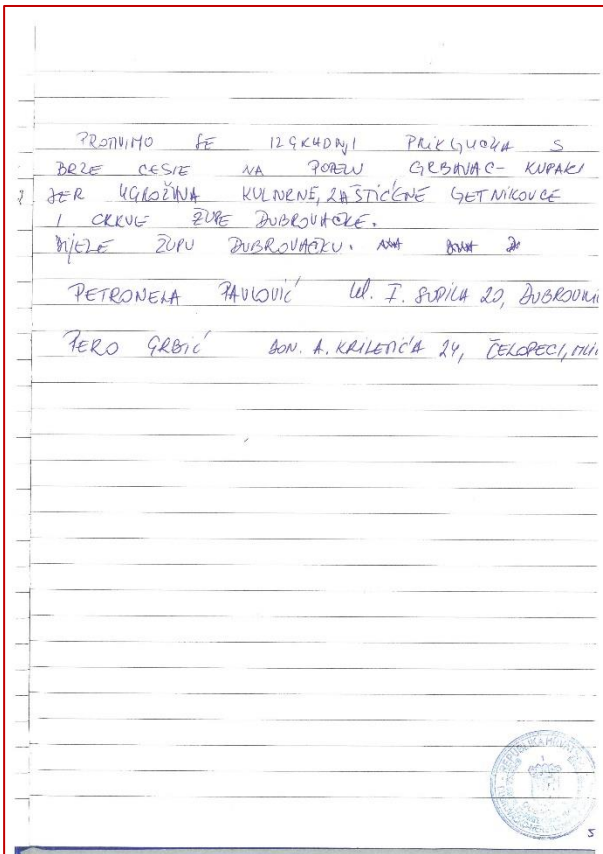 PROTIVIMO SE IZGRADNJI PRIKLJUČKA S
BRZE CESTE NA POTEZU GRBAVAC - KUPARI
JER UGROŽAVA KULTURNE, ZAŠTIĆENE LJETNIKOVCE
I CRKVE ŽUPE DUBROVAČKE.
DIJELE ŽUPU DUBROVAČKU.
PETRONELA PAVLOVIĆ Ul. F. SUPILA 20, DUBROVNI
PERO GRBIĆ DON. A. KRILETIĆA 24, ČELOPECI, MLI
REPUBLIKA HRVATSKA
5